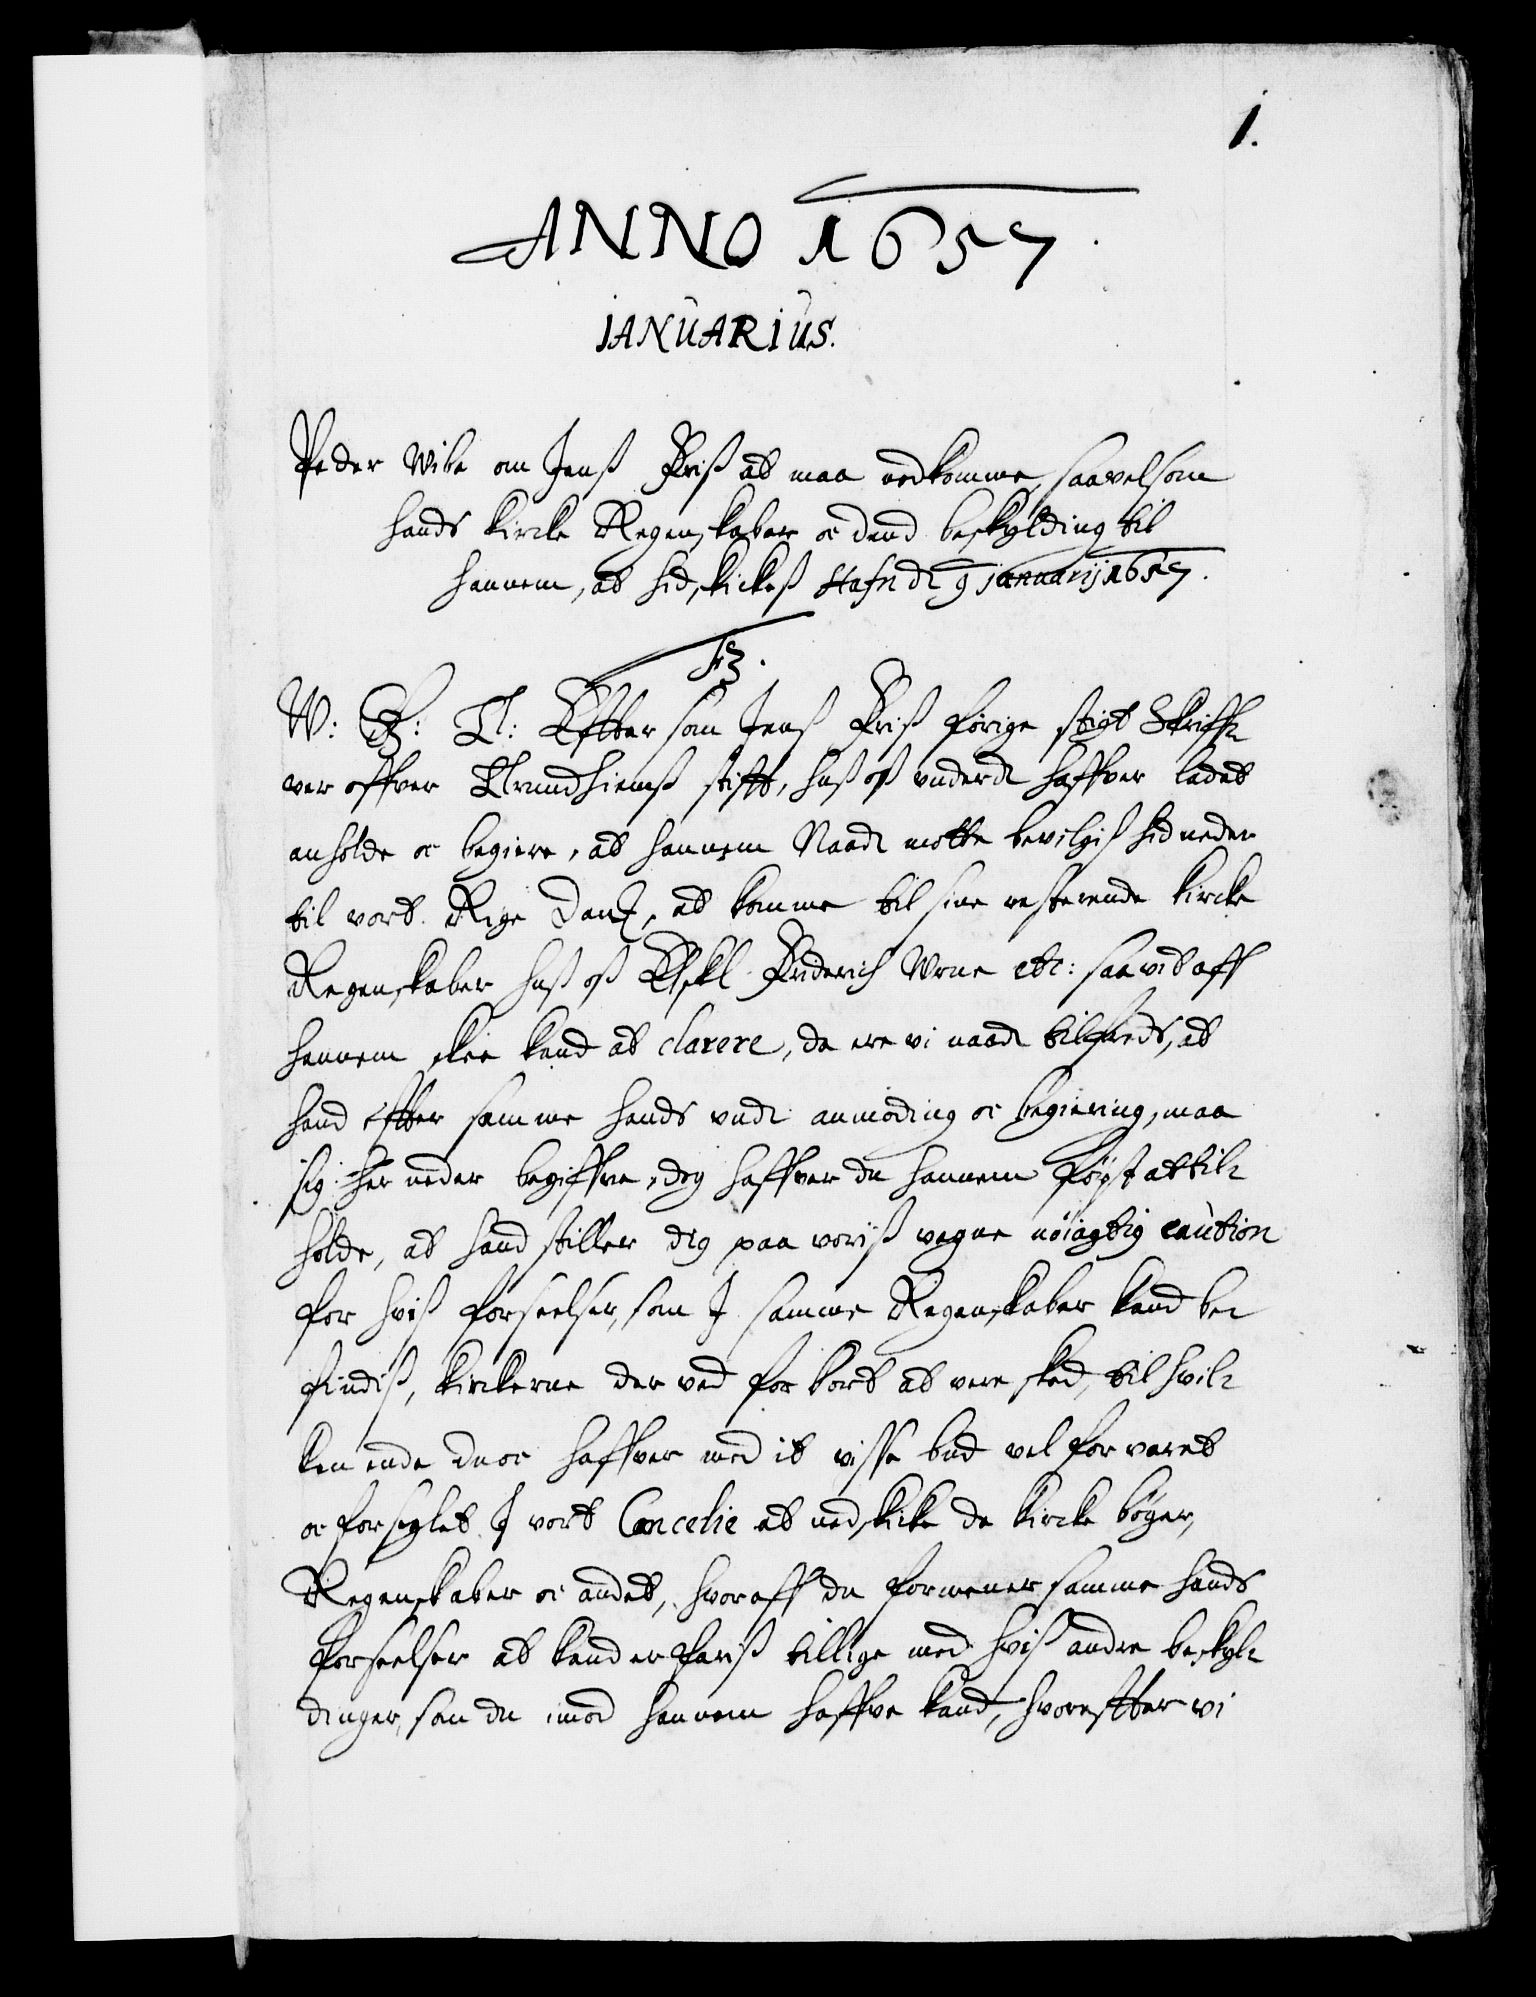 1.
ANNO 1657.
IANUARIUS.
Peder Wibe om Jenß Friß at maa nedkomme, saavelsom
hands Kircke Regenskaber oc dend beskylding til
hannem, at hidskickeß Hafn dl 9 januarij 1657.
F3.
W: G: T: Efftersom Jenß Friß forige stigt Skriff-
ver offver Trundhiemß stifft, hoß oß underdl haffver ladet
anholde oc begiere, at hannem Naadl motte bevilgiß hid neder
til vort Rige Danß, at komme til sine resterende Kircke
Regenskaber hoß oß Elskl Friderich Urne etc: saavit aff
hannem skee kand at clarere, da ere vi naadl tilfreds, at
hand effter samme hands undl anmoding oc begiering, maa
sig her neder begiffve, dog haffver du hannem først at til-
holde, at hand stiller dig paa voriß vegne nöiagtig caution
for hviß forseelser, som J samme Regenskaber kand be-
findiß, kirckerne der ved for kort at vere sked, til hvil-
ken ende du oc haffver med it visse bud vel forvaret
oc forseglet J vort Cancelie at nedskicke de kircke bøger,
Regenskaber oc andet, hvoraff du formener samme hands
forseelser at kand erfariß tillige med hviß andre beskyl-
dinger, som du imod hannem haffve kand, hvoreffter vi